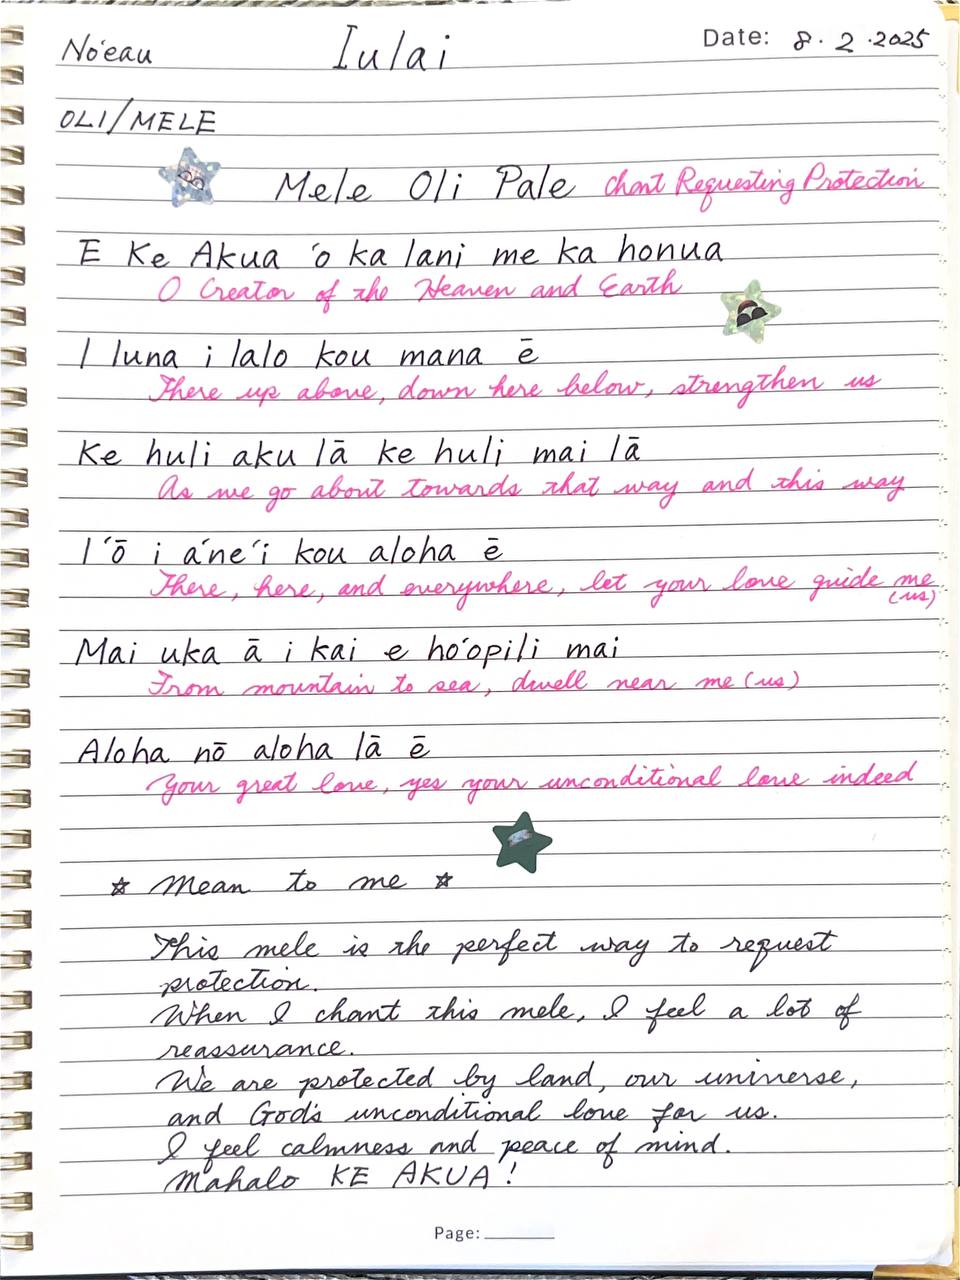 No'eau Iulai Date: 8.2.2025
OLI/MELE
Mele Oli Pale Chant Requesting Protection
E Ke Akua 'o ka lani me ka honua
O Creator of the Heaven and Earth
I luna i lalo kou mana ē
There up above, down here below, strengthen us
Ke huli aku lā ke huli mai lā
As we go about towards that way and this way
I 'ō i a'ne'i kou aloha ē
There, here, and everywhere, let your love guide me
(us)
Mai uka ā i kai e ho'opili mai
From mountain to sea, dwell near me (us)
Aloha nō aloha lā ē
Your great love, yes your unconditional love indeed
☆ Mean to me ☆
This mele is the perfect way to request
protection.
When I chant this mele, I feel a lot of
reassurance.
We are protected by land, our universe,
and God's unconditional love for us.
I feel calmness and peace of mind.
Mahalo KE AKUA!
Page: